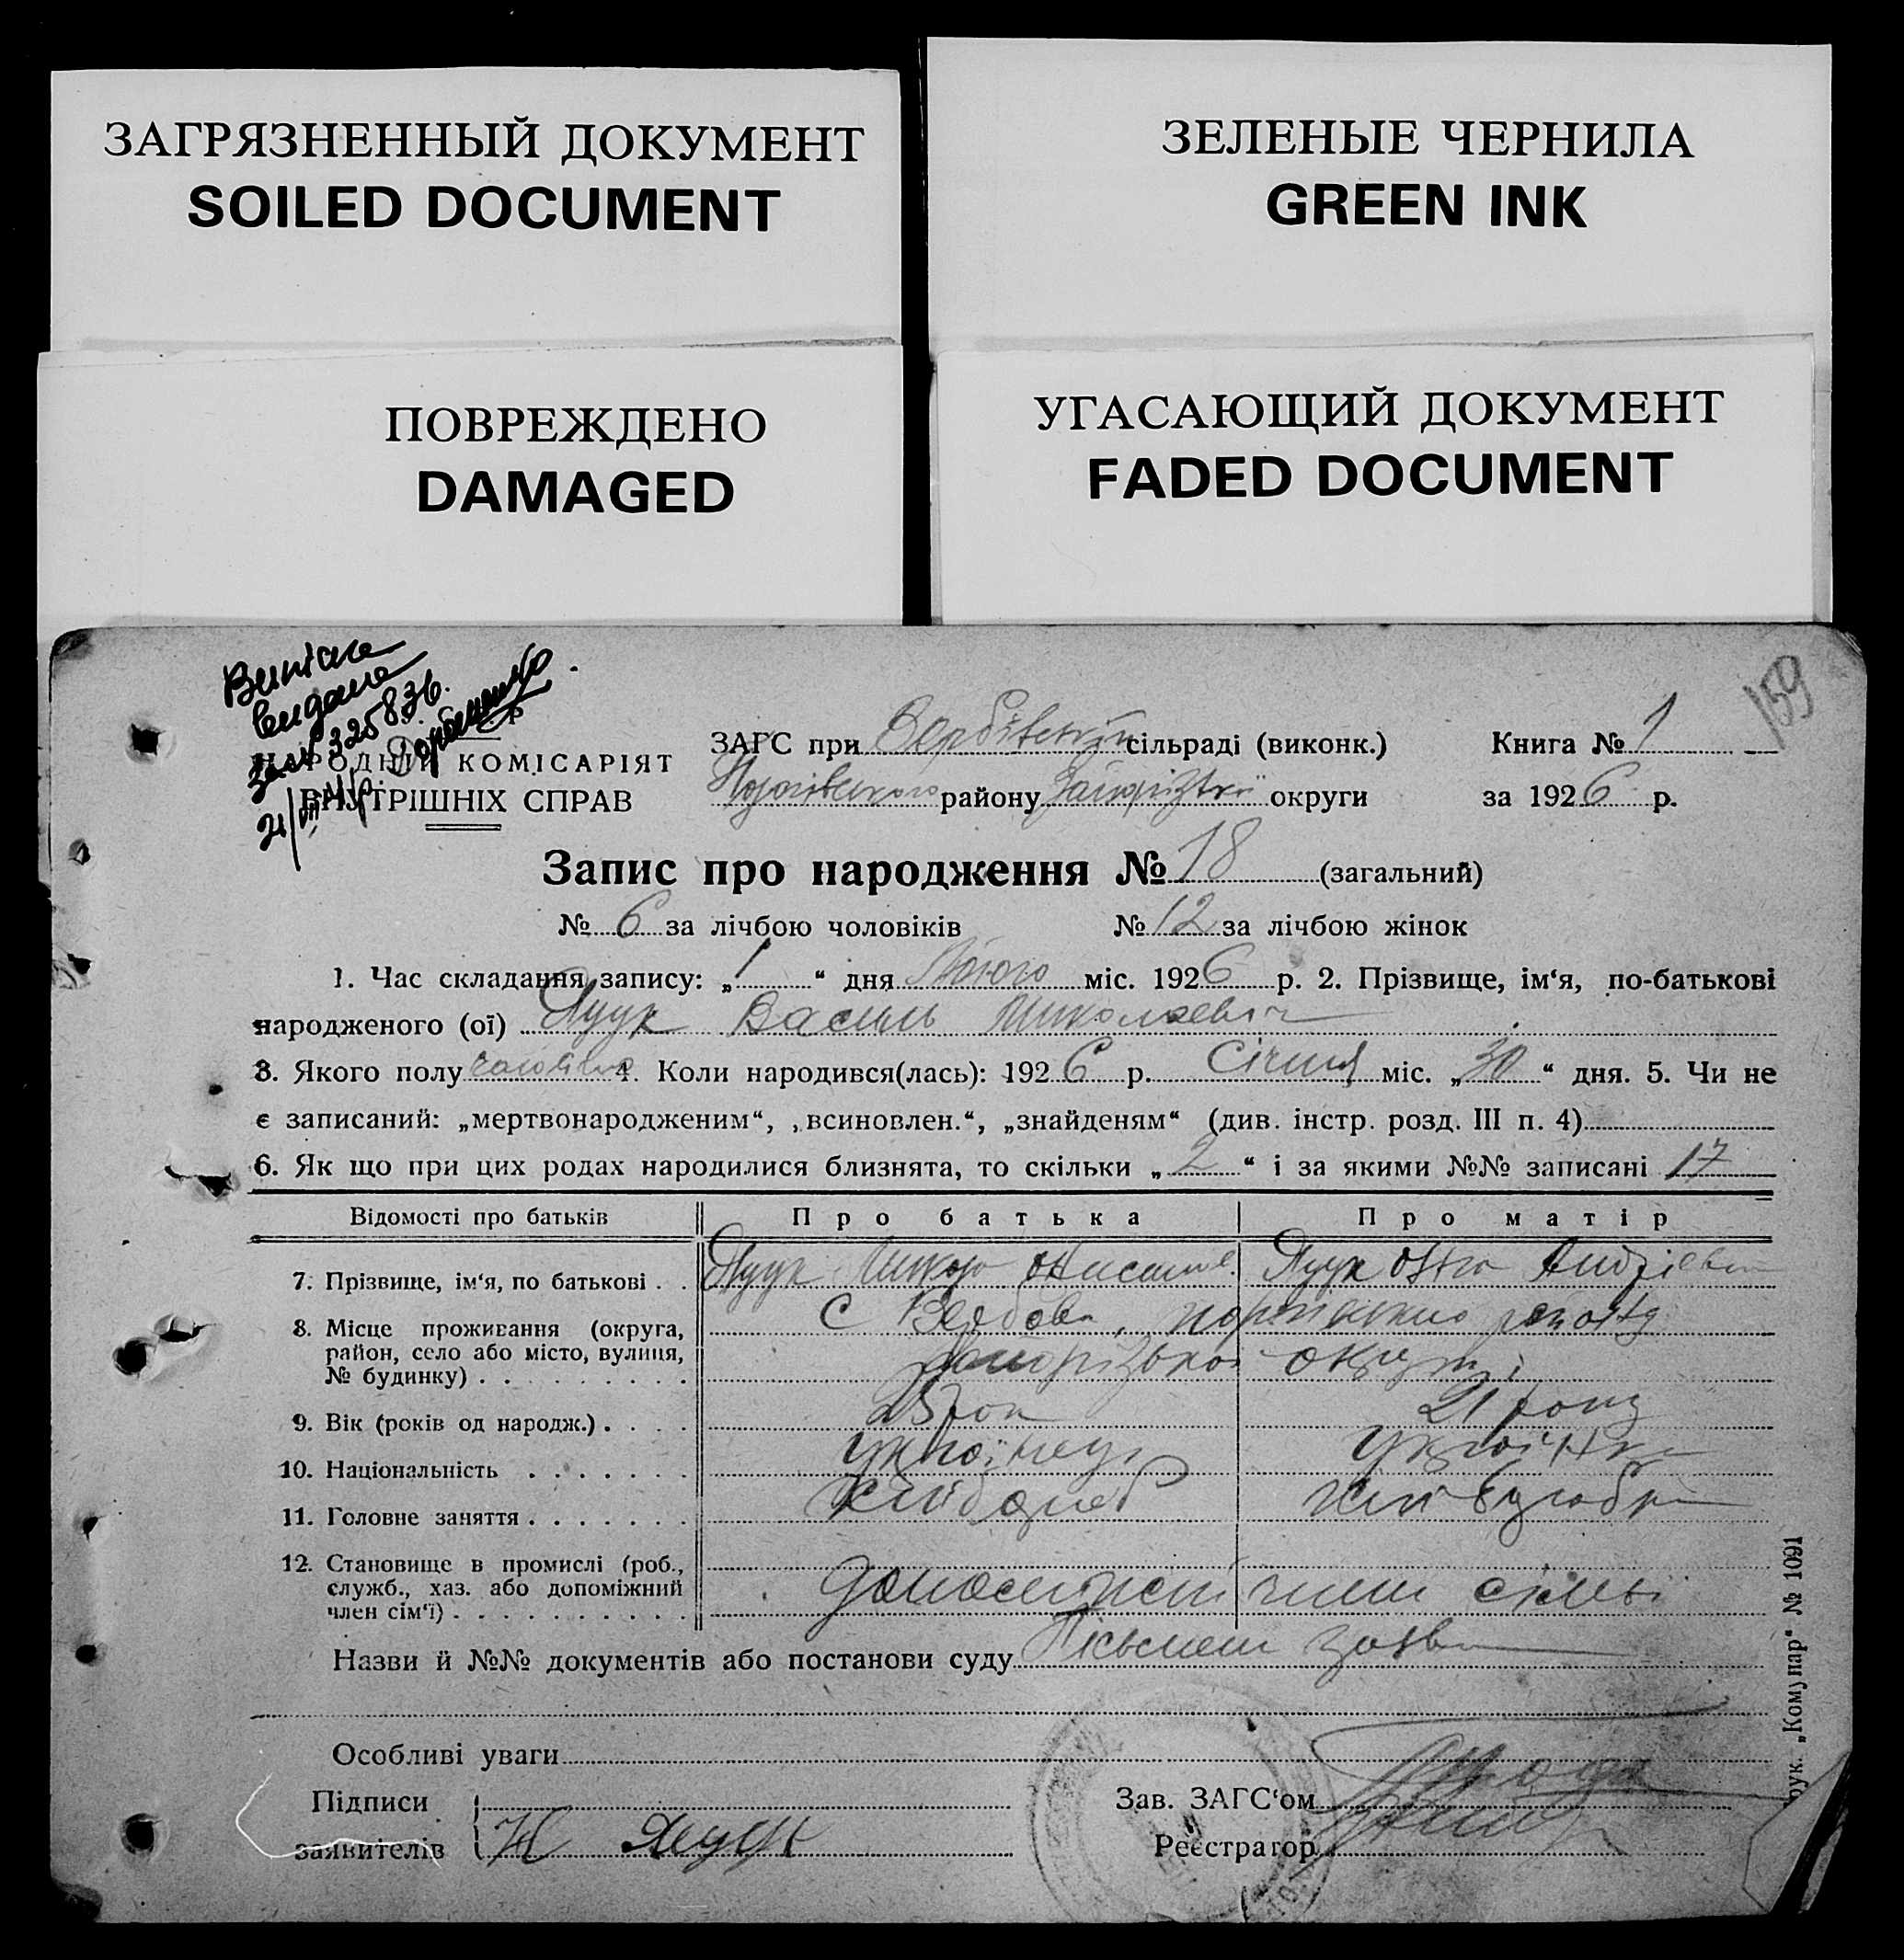 ЗАГРЯЗНЕННЫЙ ДОКУМЕНТ
SOILED DOCUMENT
ЗЕЛЕНЫЕ ЧЕРНИЛА
GREEN INK
ПОВРЕЖДЕНО
DAMAGED
УГАСАЮЩИЙ ДОКУМЕНТ
FADED DOCUMENT
159
видана
325836.
НАРОДНІЙ КОМІСАРІЯТ
ВНУТРІШНІХ СПРАВ
ЗАГС при Вербівській сільраді (виконк.) Книга № 1
району Запорізької округи за 1926 р.
Запис про народження № 18 (загальний)
№ 6 за лічбою чоловіків № 12 за лічбою жінок
1. Час складання запису: „1“ дня Лютого міс. 1926 р. 2. Прізвище, ім‘я, по-батькові
народженого (ої) Яцук Василь Миколаевич
3. Якого полу 4. Коли народився(лась): 1926 р. Січня міс. „30“ дня. 5. Чи не
є записаний: „мертвонародженим“, „всиновлен.“, „знайденям“ (див. інстр. розд. III п. 4)
6. Як що при цих родах народилися близнята, то скільки „2“ і за якими №№ записані 17
Відомості про батьків Про батька Про матір
7. Прізвище, ім‘я, по батькові Яцук Яцук
8. Місце проживання (округа, с Вербова,
район, село або місто, вулиця, Запорізької округи
№ будинку)
9. Вік (років од народж.) 21 року
10. Національність українець українка
11. Головне заняття хлібороб
12. Становище в промислі (роб.,
служб., хаз. або допоміжний член сімьї
член сім‘ї)
Назви й №№ документів або постанови суду заява
Особливі уваги
Підписи Зав. ЗАГС‘ом
заявителів Н Яцук Реєстратор
рук. „Комунар“ № 1091